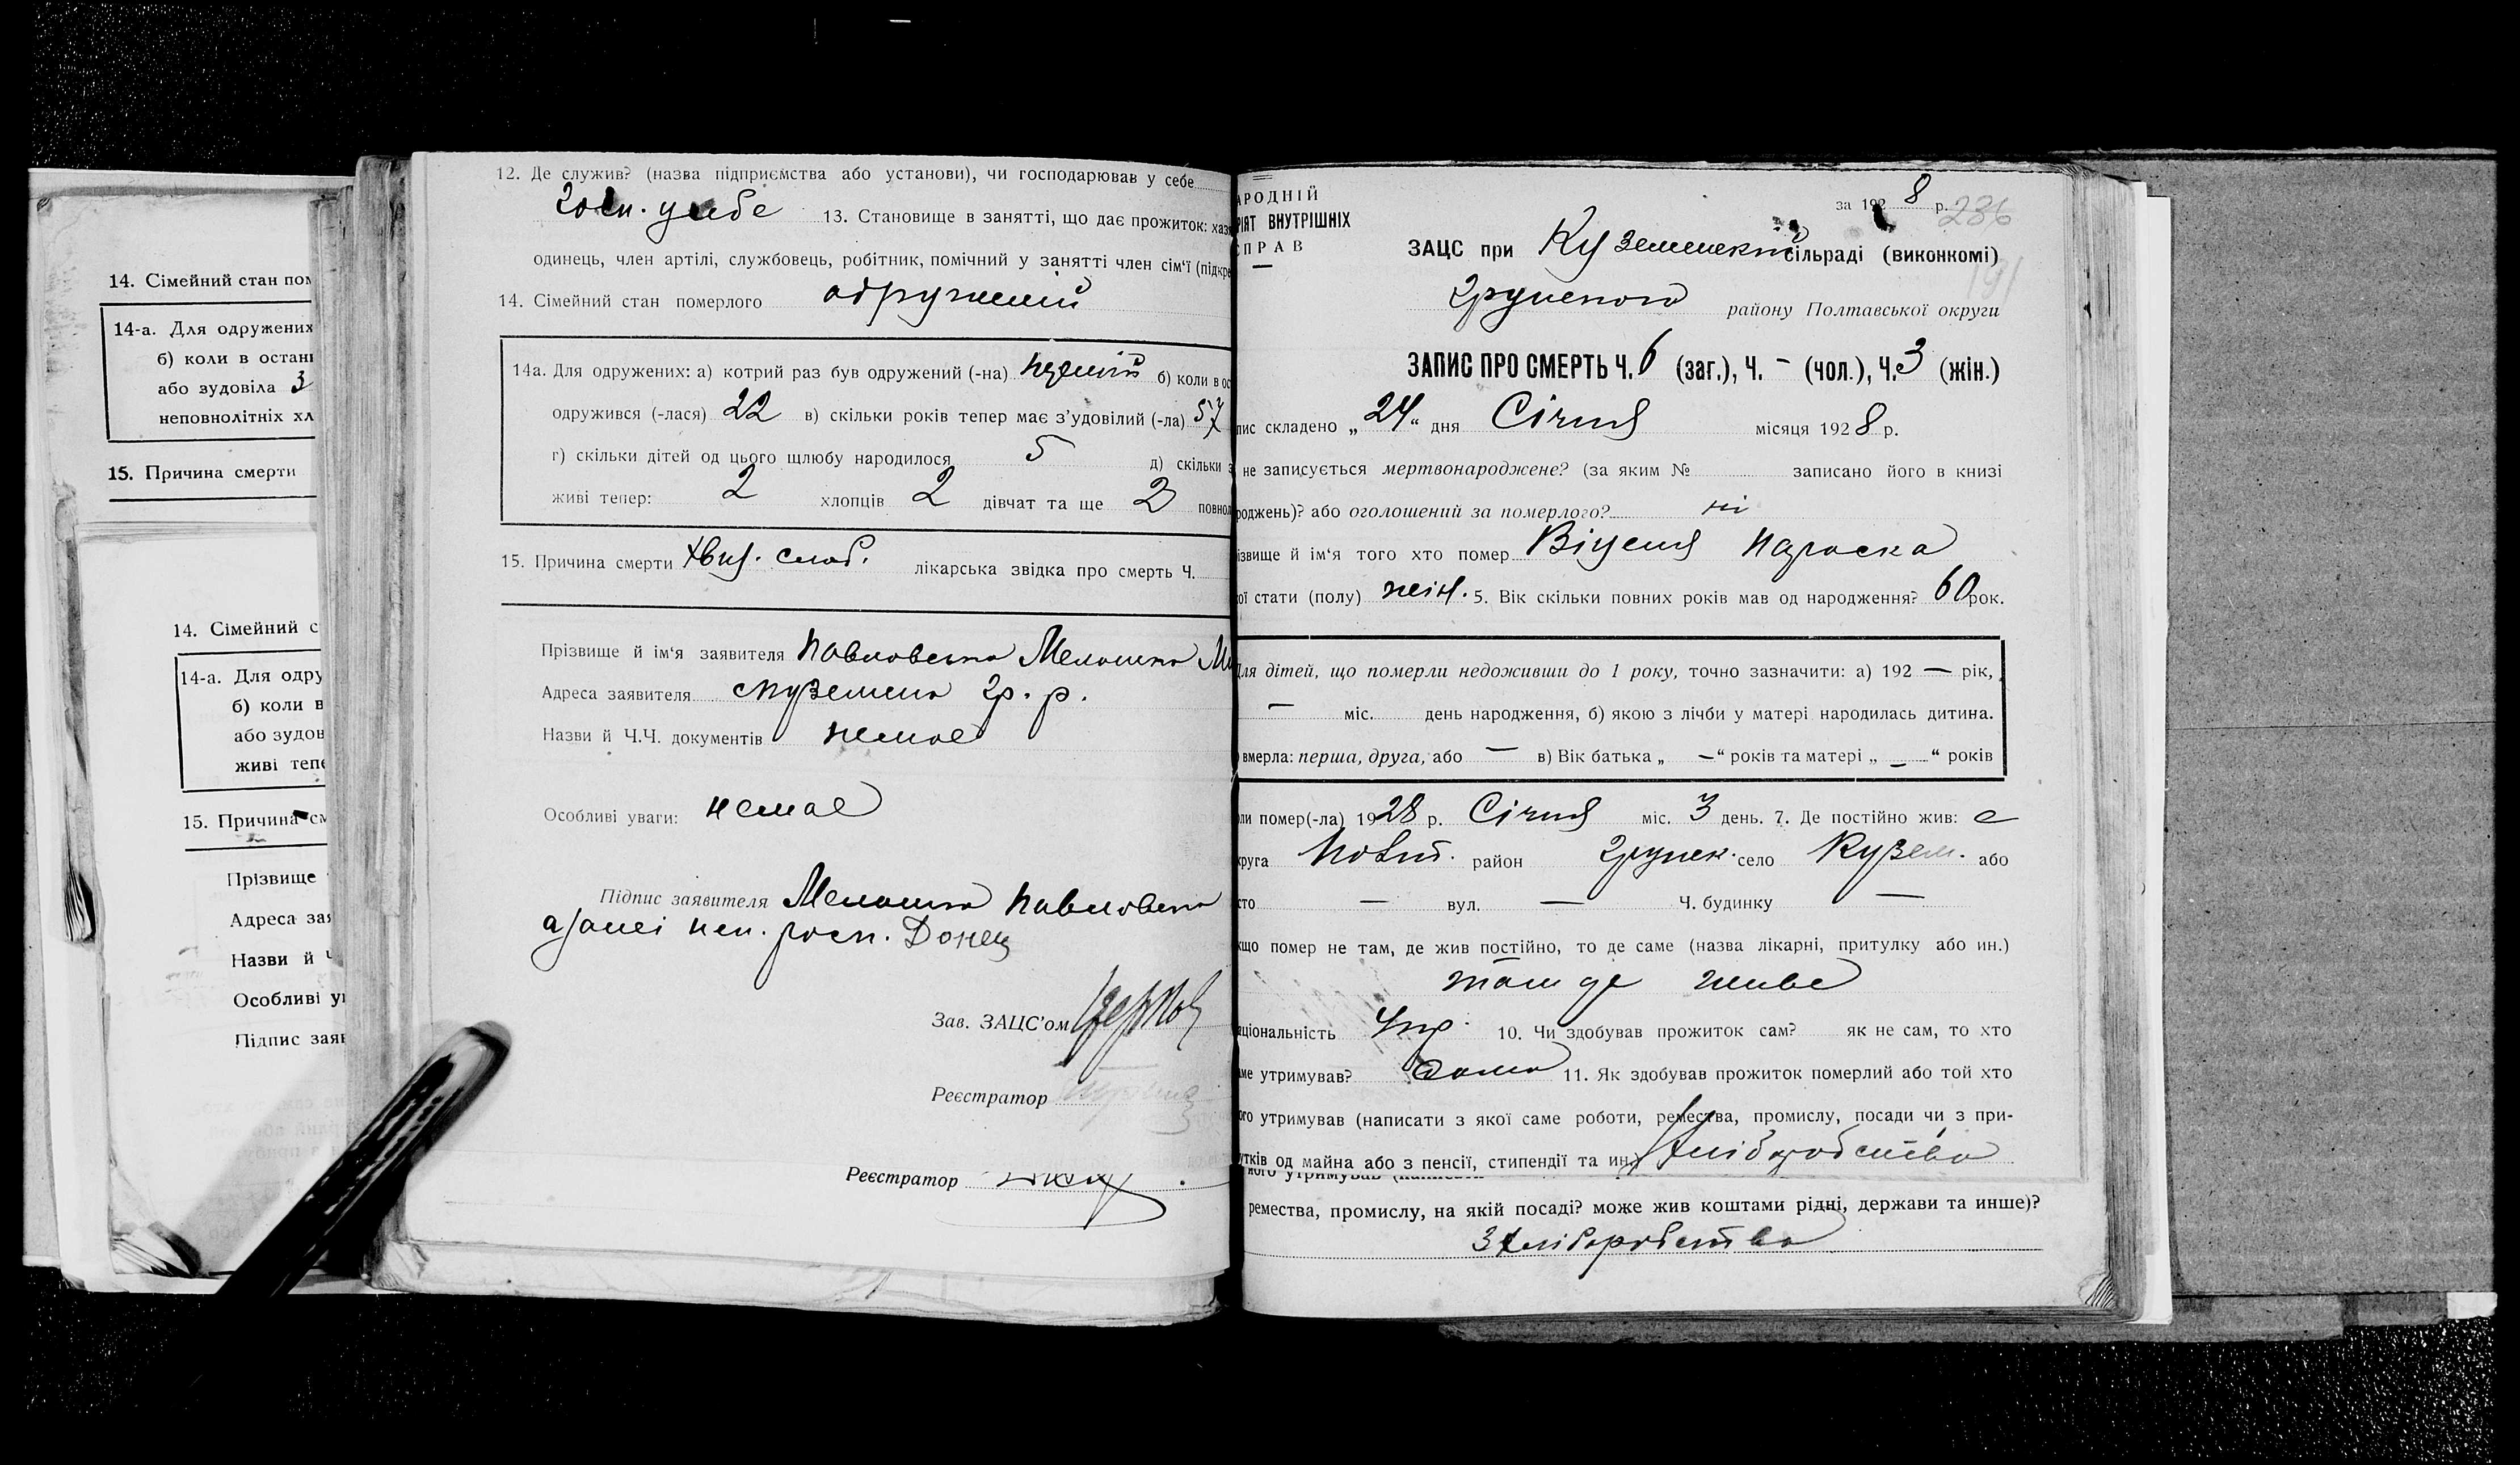 14. Сімейний стан пом
14-а. Для одружених
б) коли в остан
або зудовіла 3
неповнолітніх хл
15. Причина смерти
14. Сімейний с
14-а. Для одру
б) коли в
або зудов
живі тепе
15. Причина см
Прізвище
Адреса зая
Назви й Ч
Особливі ув
Підпис заяв
12. Де служив? (назва підприємства або установи), чи господарював у себе
Госп. у себе 13. Становище в занятті, що дає прожиток: хаз
одинець, член артілі, службовець, робітник, помічний у занятті член сім'ї (підкре
14. Сімейний стан померлого одружений
14а. Для одружених: а) котрий раз був одружений (-на) перший б) коли в ос
одружився (-лася) 22 в) скільки років тепер має з'удовілий (-ла) 57
г) скільки дітей од цього щлюбу народилося 5 д) скільки з
живі тепер: 2 хлопців 2 дівчат та ще 2 повнол
15. Причина смерти лікарська звідка про смерть Ч.
Прізвище й ім'я заявителя Павловська Мелашка
Адреса заявителя с Куземена Гр. р.
Назви й Ч.Ч. документів немає
Особливі уваги: немає
Підпис заявителя Мелашка Павловська
а за неї неп. росп. Донец
Зав. ЗАЦС'ом
Реєстратор
Реєстратор
АРОДНІЙ
РІЯТ ВНУТРІШНІХ
СПРАВ
за 1928 р. 236
ЗАЦС при Куземенській сільраді (виконкомі)
Грунського району Полтавської округи
ЗАПИС ПРО СМЕРТЬ Ч. 6 (заг.), Ч. – (чол.), Ч. 3 (жін.)
пис складено „24“ дня Січня місяця 1928 р.
не записується мертвонароджене? (за яким № записано його в книзі
роджень)? або оголошений за померлого? ні
ізвище й ім'я того хто помер Параска
ої стати (полу) жін. 5. Вік скільки повних років мав од народження? 60 рок.
Для дітей, що померли недоживши до 1 року, точно зазначити: а) 192 — рік,
— міс. день народження, б) якою з лічби у матері народилась дитина.
вмерла: перша, друга, або — в) Вік батька „ —“ років та матері „ – “ років
ли помер(-ла) 1928 р. Січня міс. 3 день. 7. Де постійно жив: с
круга Полт. район Грунск. село Кузем. або
сто — вул. — Ч. будинку —
кщо помер не там, де жив постійно, то де саме (назва лікарні, притулку або ин.)
там де живе
аціональність Укр. 10. Чи здобував прожиток сам? як не сам, то хто
ме утримував? Сама 11. Як здобував прожиток померлий або той хто
ого утримував (написати з якої саме роботи, ремества, промислу, посади чи з при-
утків од майна або з пенсії, стипендії та ин.) Хліборобство
ремества, промислу, на якій посаді? може жив коштами рідні, держави та инше)?
З Хліборобства